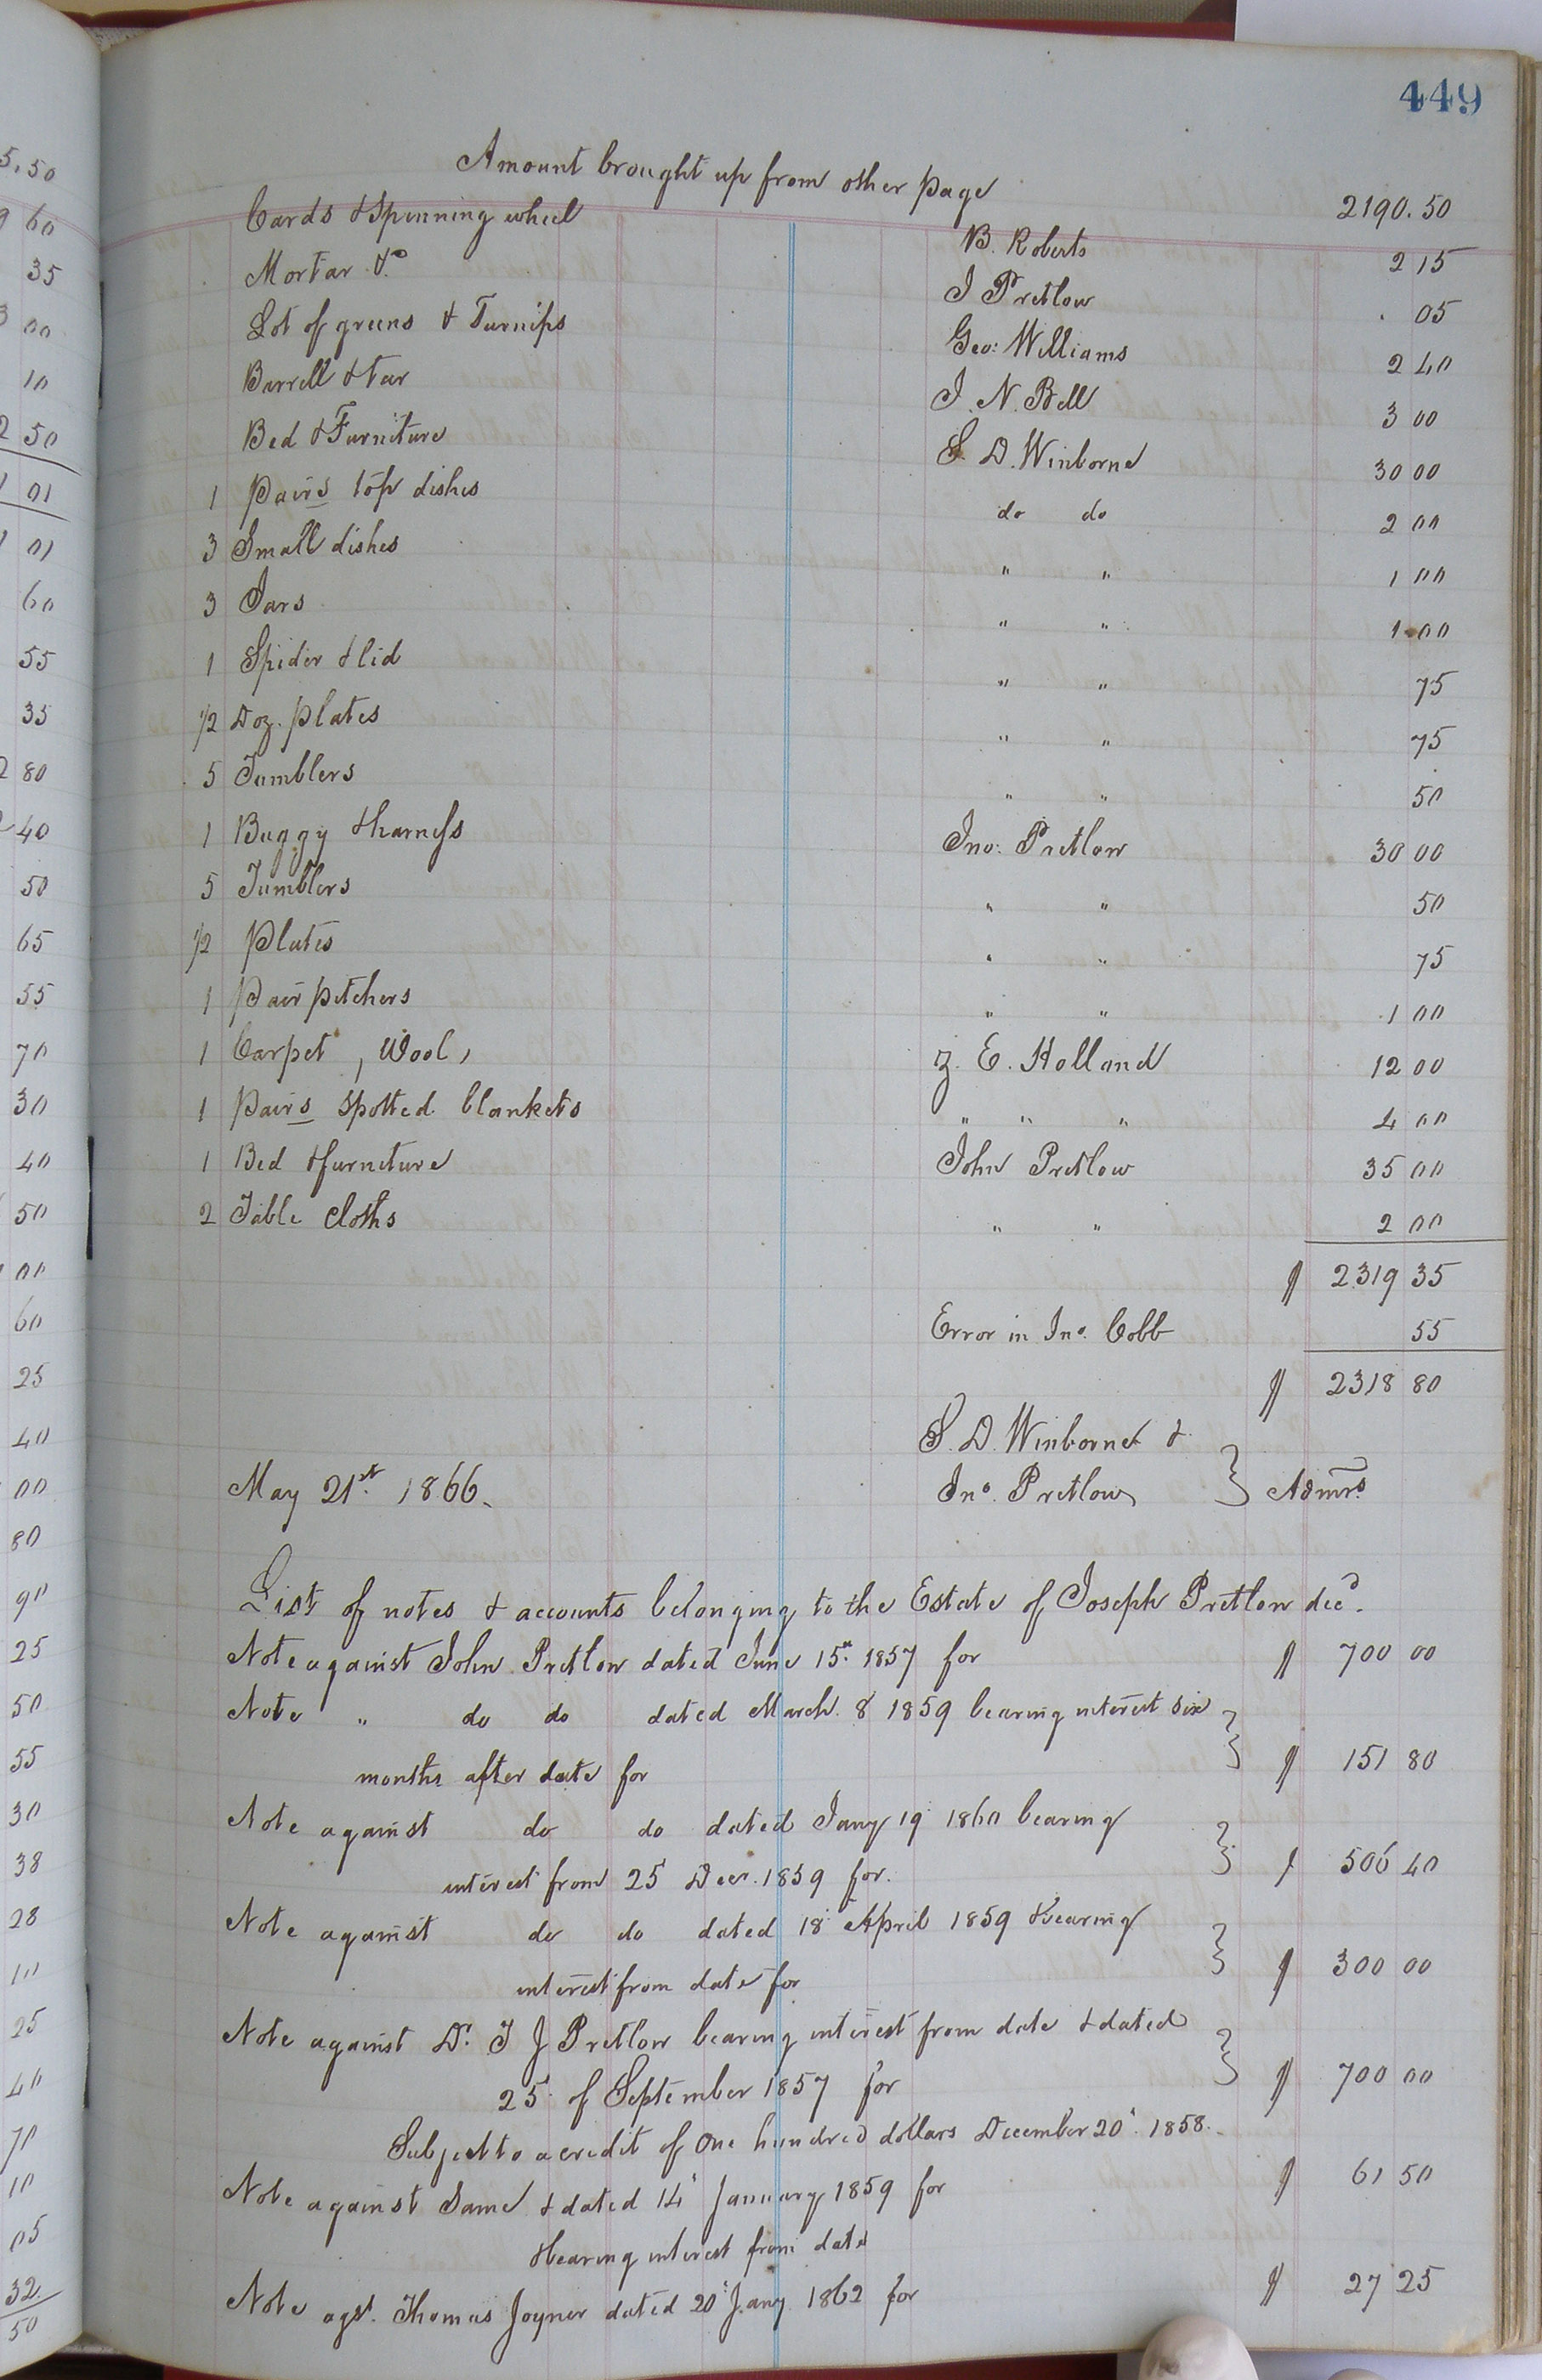 449
Amount brought up from other page 2190.50
Cards & Spinning wheel B. Roberts 2 15
Mortar &c J Pretlow . 05
Lot of greens & Turnips Geo: Williams 2 40
Barrell & tar J. N. Bell 3 00
Bed & Furniture S. D. Winborne 30 00
1 Pairs top dishes do do 2 00
3 Small dishes " " 1 00
3 Jars " " 1.00
1 Spider & lid " " 75
1/2 Doz. plates " " 75
5 Tumblers " " 50
1 Buggy & harness Jno: Pretlow 30 00
5 Tumblers " " 50
1/2 Plates " " 75
1 Pair pitchers " " 1 00
1 Carpet, Wool, Z. E. Holland 12 00
1 Pairs Spotted blankets " " " 4 00
1 Bed & furniture John Pretlow 35 00
2 Table Cloths " " 2 00
$ 2319 35
Error in Jno. Cobb 55
$ 2318 80
S. D. Winborne &
May 21st 1866. Jno. Pretlow } Admrs
List of notes & accounts belonging to the Estate of Joseph Pretlow decd.
Note against John Pretlow dated June 15th 1857 for $ 700 00
Note " do do dated March 8 1859 bearing interest six
months after date for } $ 151 80
Note against do do dated Jany 19 1860 bearing
interest from 25 Decr. 1859 for. } $ 506 40
Note against do do dated 18 April 1859 & bearing
interest from date for } $ 300 00
Note against Dr. T J Pretlow bearing interest from date & dated
25 of September 1857 for } $ 700 00
Subject to a credit of One hundred dollars December 20. 1858.
Note against Same & dated 14 January 1859 for $ 61 50
& bearing interest from date
Note agst. Thomas Joyner dated 20 Jany 1862 for $ 27 25